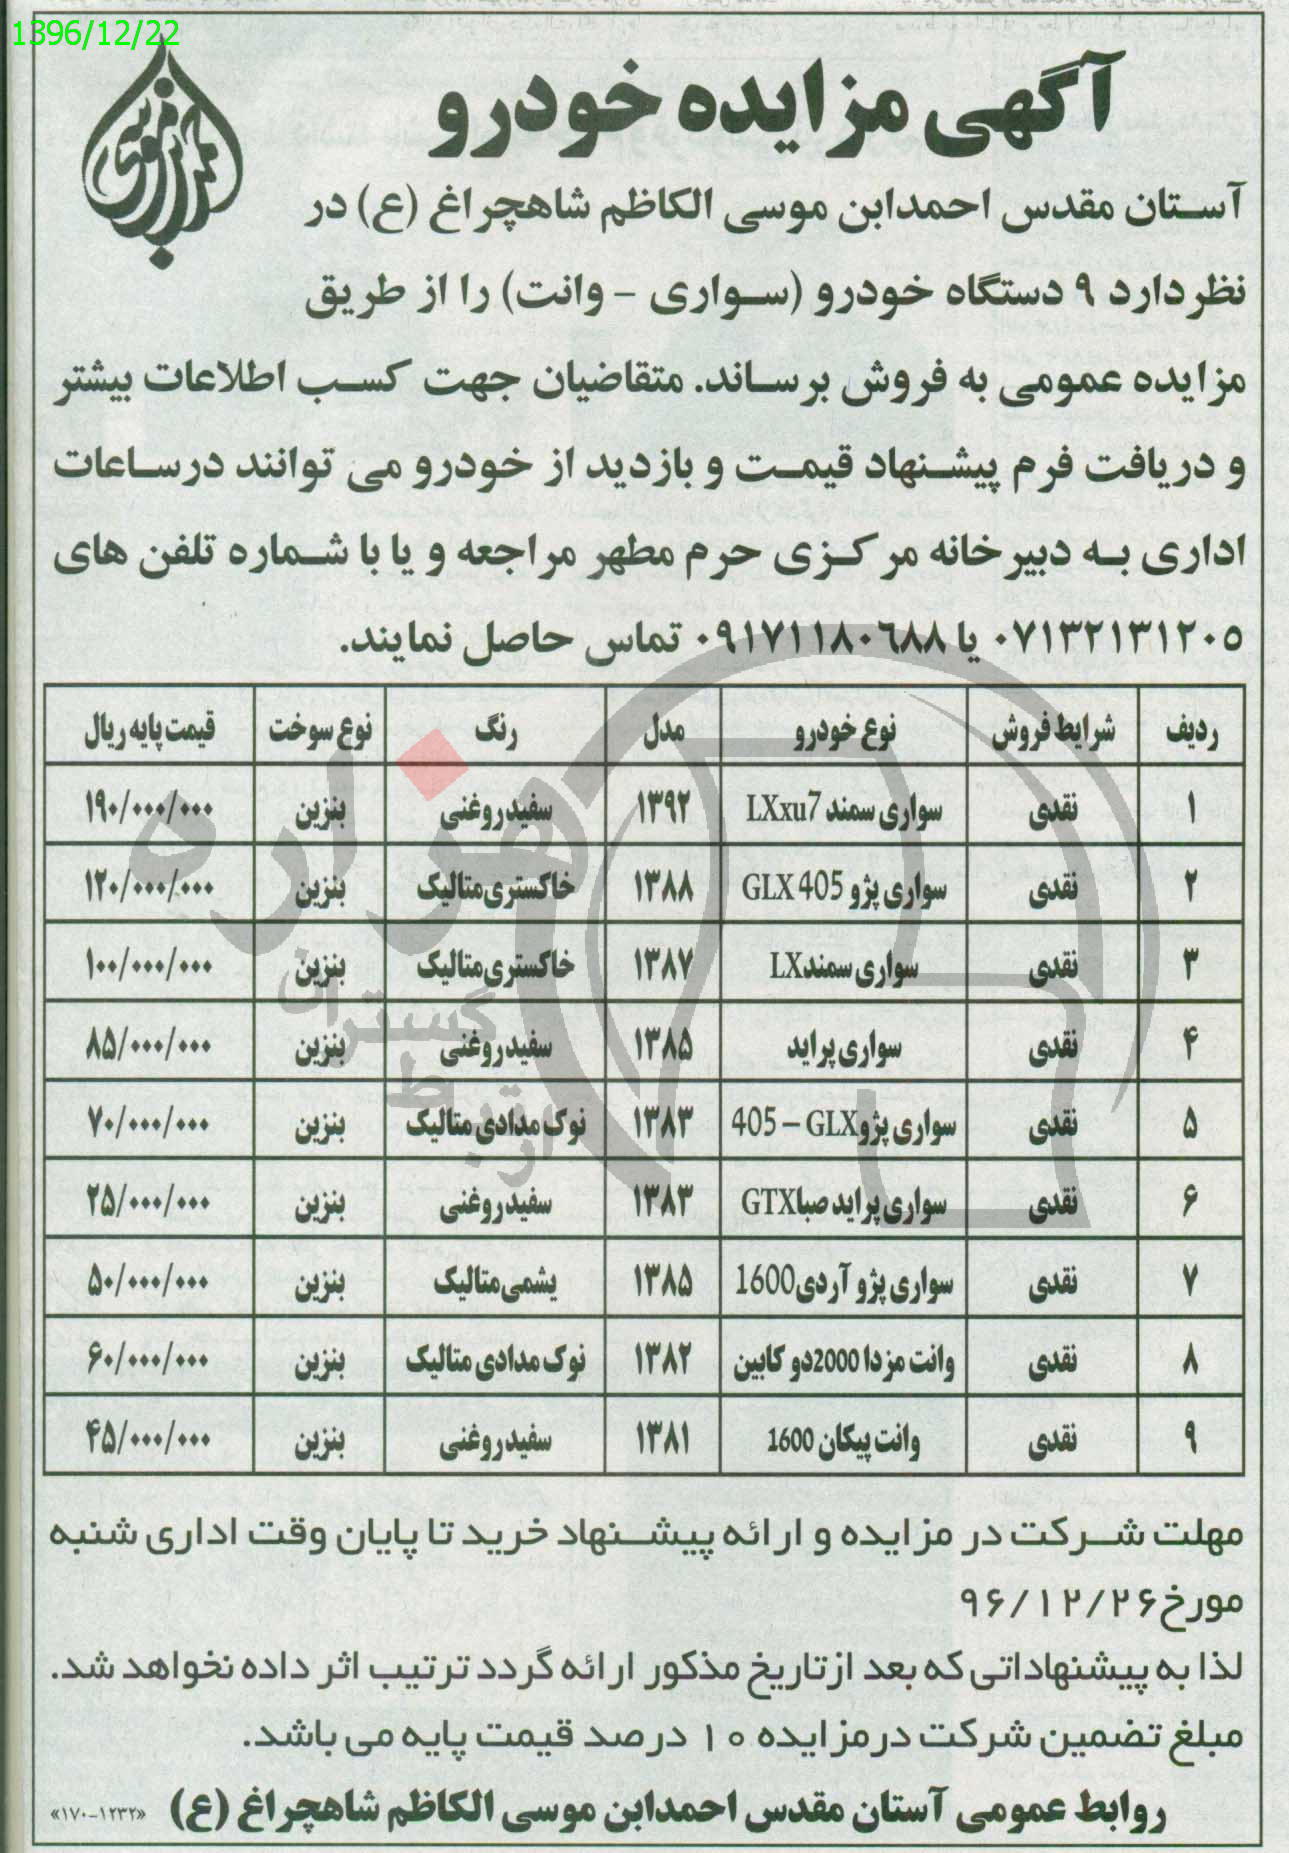 1396/12/22
آگهی مزایده خودرو
آستان مقدس احمدابن موسی الکاظم شاهچراغ (ع) در
نظر دارد ۹ دستگاه خودرو (سواری - وانت) را از طریق
مزایده عمومی به فروش برساند. متقاضیان جهت کسب اطلاعات بیشتر
و دریافت فرم پیشنهاد قیمت و بازدید از خودرو می توانند درساعات
اداری به دبیرخانه مرکزی حرم مطهر مراجعه و یا با شماره تلفن های
۰۷۱۳۲۱۳۱۲۰۵ یا ۰۹۱۷۱۱۸۰۶۸۸ تماس حاصل نمایند.
ردیف شرایط فروش نوع خودرو مدل رنگ نوع سوخت قیمت پایه ریال
۱ نقدی سواری سمند LXxu7 ۱۳۹۲ سفید روغنی بنزین ۱۹۰/۰۰۰/۰۰۰
۲ نقدی سواری پژو GLX 405 ۱۳۸۸ خاکستری متالیک بنزین ۱۲۰/۰۰۰/۰۰۰
۳ نقدی سواری سمند LX ۱۳۸۷ خاکستری متالیک بنزین ۱۰۰/۰۰۰/۰۰۰
۴ نقدی سواری پراید ۱۳۸۵ سفید روغنی بنزین ۸۵/۰۰۰/۰۰۰
۵ نقدی سواری پژو 405 – GLX ۱۳۸۳ نوک مدادی متالیک بنزین ۷۰/۰۰۰/۰۰۰
۶ نقدی سواری پراید صبا GTX ۱۳۸۳ سفید روغنی بنزین ۲۵/۰۰۰/۰۰۰
۷ نقدی سواری پژو آردی 1600 ۱۳۸۵ یشمی متالیک بنزین ۵۰/۰۰۰/۰۰۰
۸ نقدی وانت مزدا 2000 دو کابین ۱۳۸۲ نوک مدادی متالیک بنزین ۶۰/۰۰۰/۰۰۰
۹ نقدی وانت پیکان 1600 ۱۳۸۱ سفید روغنی بنزین ۴۵/۰۰۰/۰۰۰
مهلت شرکت در مزایده و ارائه پیشنهاد خرید تا پایان وقت اداری شنبه
مورخ ۹۶/۱۲/۲۶
لذا به پیشنهاداتی که بعد از تاریخ مذکور ارائه گردد ترتیب اثر داده نخواهد شد.
مبلغ تضمین شرکت در مزایده ۱۰ درصد قیمت پایه می باشد.
روابط عمومی آستان مقدس احمدابن موسی الکاظم شاهچراغ (ع) «۱۷۰-۱۲۳۲»